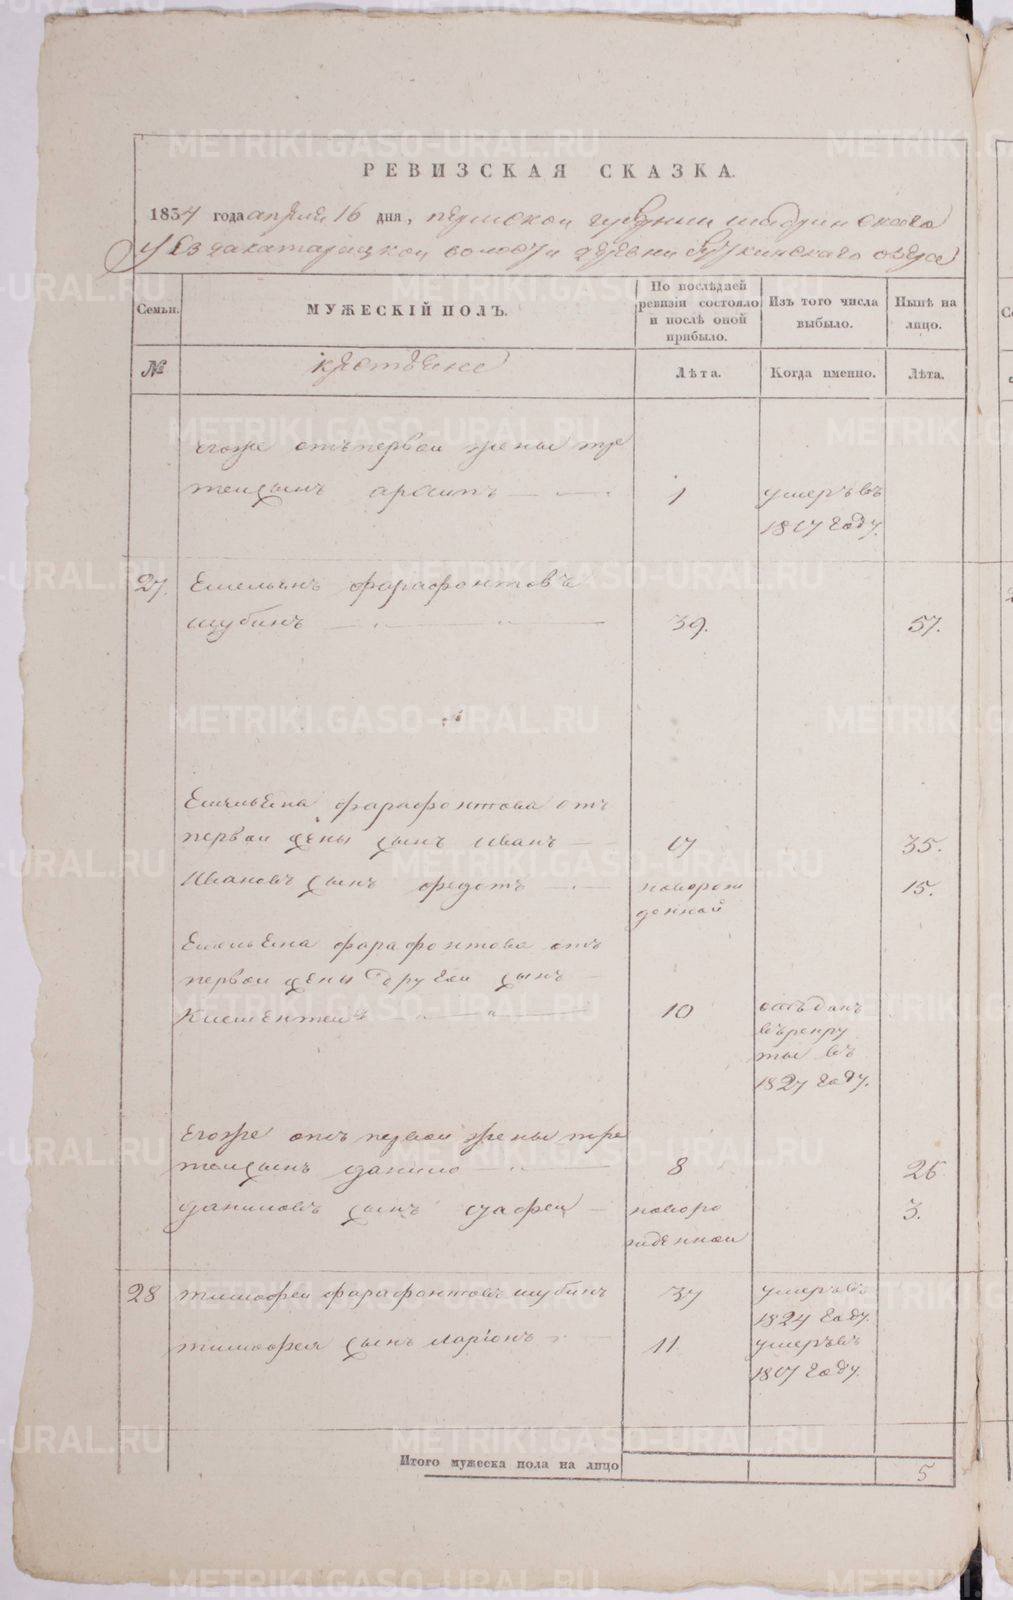 РЕВИЗСКАЯ СКАЗКА.
1834 года апреля 16 дня, пермской губернии шадринскаго
уезда катайцкой волости деревни
Семьи.
МУЖЕСКІЙ ПОЛЪ.
По послѣдней ревизіи состояло и послѣ оной прибыло.
Изъ того числа выбыло.
Нынѣ на лицо.
№
крестьяне
Лѣта.
Когда именно.
Лѣта.
егоже отъ первои жены тре
теисынъ архипъ 1 умеръ въ
1817 году.
27. Емельянъ фарафонтовъ
шубинъ 39. 57.
Емельяна фарафонтова отъ
первои жены сынъ Иванъ 17 35.
Ивановъ сынъ федотъ новорож 15.
денной
Емельяна фарафонтова отъ
первои жены другои сынъ
Климентеи 10 отъданъ
въ рекру
ты въ
1827 году.
Егоже отъ первои жены тре
теисынъ данило 8 26
даниловъ сынъ новоро 3.
жденнои
28 тимофеи фарафонтовъ шубинъ 37 умеръ въ
1824 году.
тимофея сынъ Ларіонъ 11. умеръ въ
1817 году.
Итого мужеска пола на лицо 5
METRIKI.GASO-URAL.RU